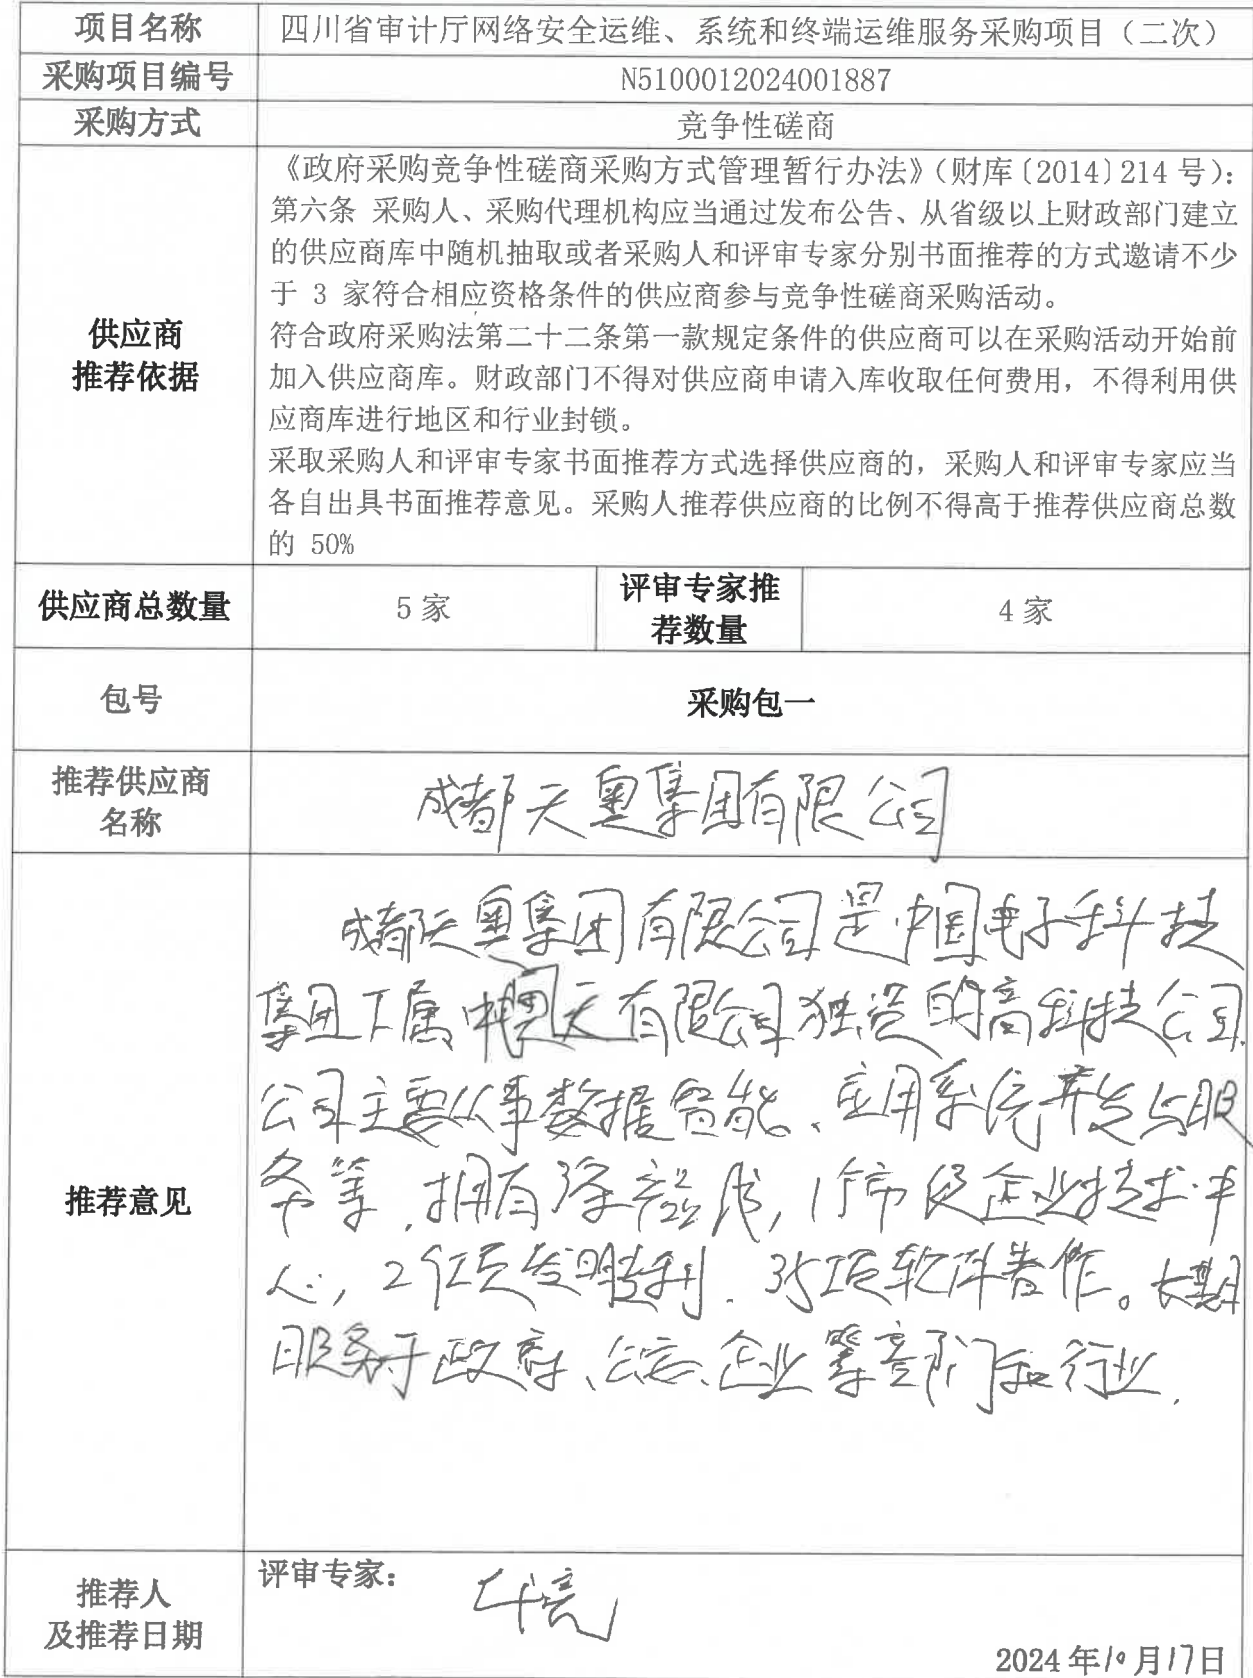 项目名称 四川省审计厅网络安全运维、系统和终端运维服务采购项目（二次）
采购项目编号 N5100012024001887
采购方式 竞争性磋商
供应商
推荐依据
《政府采购竞争性磋商采购方式管理暂行办法》（财库〔2014〕214 号）：
第六条 采购人、采购代理机构应当通过发布公告、从省级以上财政部门建立
的供应商库中随机抽取或者采购人和评审专家分别书面推荐的方式邀请不少
于 3 家符合相应资格条件的供应商参与竞争性磋商采购活动。
符合政府采购法第二十二条第一款规定条件的供应商可以在采购活动开始前
加入供应商库。财政部门不得对供应商申请入库收取任何费用，不得利用供
应商库进行地区和行业封锁。
采取采购人和评审专家书面推荐方式选择供应商的，采购人和评审专家应当
各自出具书面推荐意见。采购人推荐供应商的比例不得高于推荐供应商总数
的 50%
供应商总数量 5 家
评审专家推
荐数量
4 家
包号 采购包一
推荐供应商
名称
成都天奥集团有限公司
推荐意见
成都天奥集团有限公司是中国电子科技
集团下属 有限公司独资的高科技公司
公司主要从事数据智能、应用系统开发与服
务等，拥有 ，1个市级企业技术中
心，2项发明专利、35项软件著作。长期
服务于政府、公安、企业等部门和行业.
推荐人
及推荐日期
评审专家：
2024 年10月17日